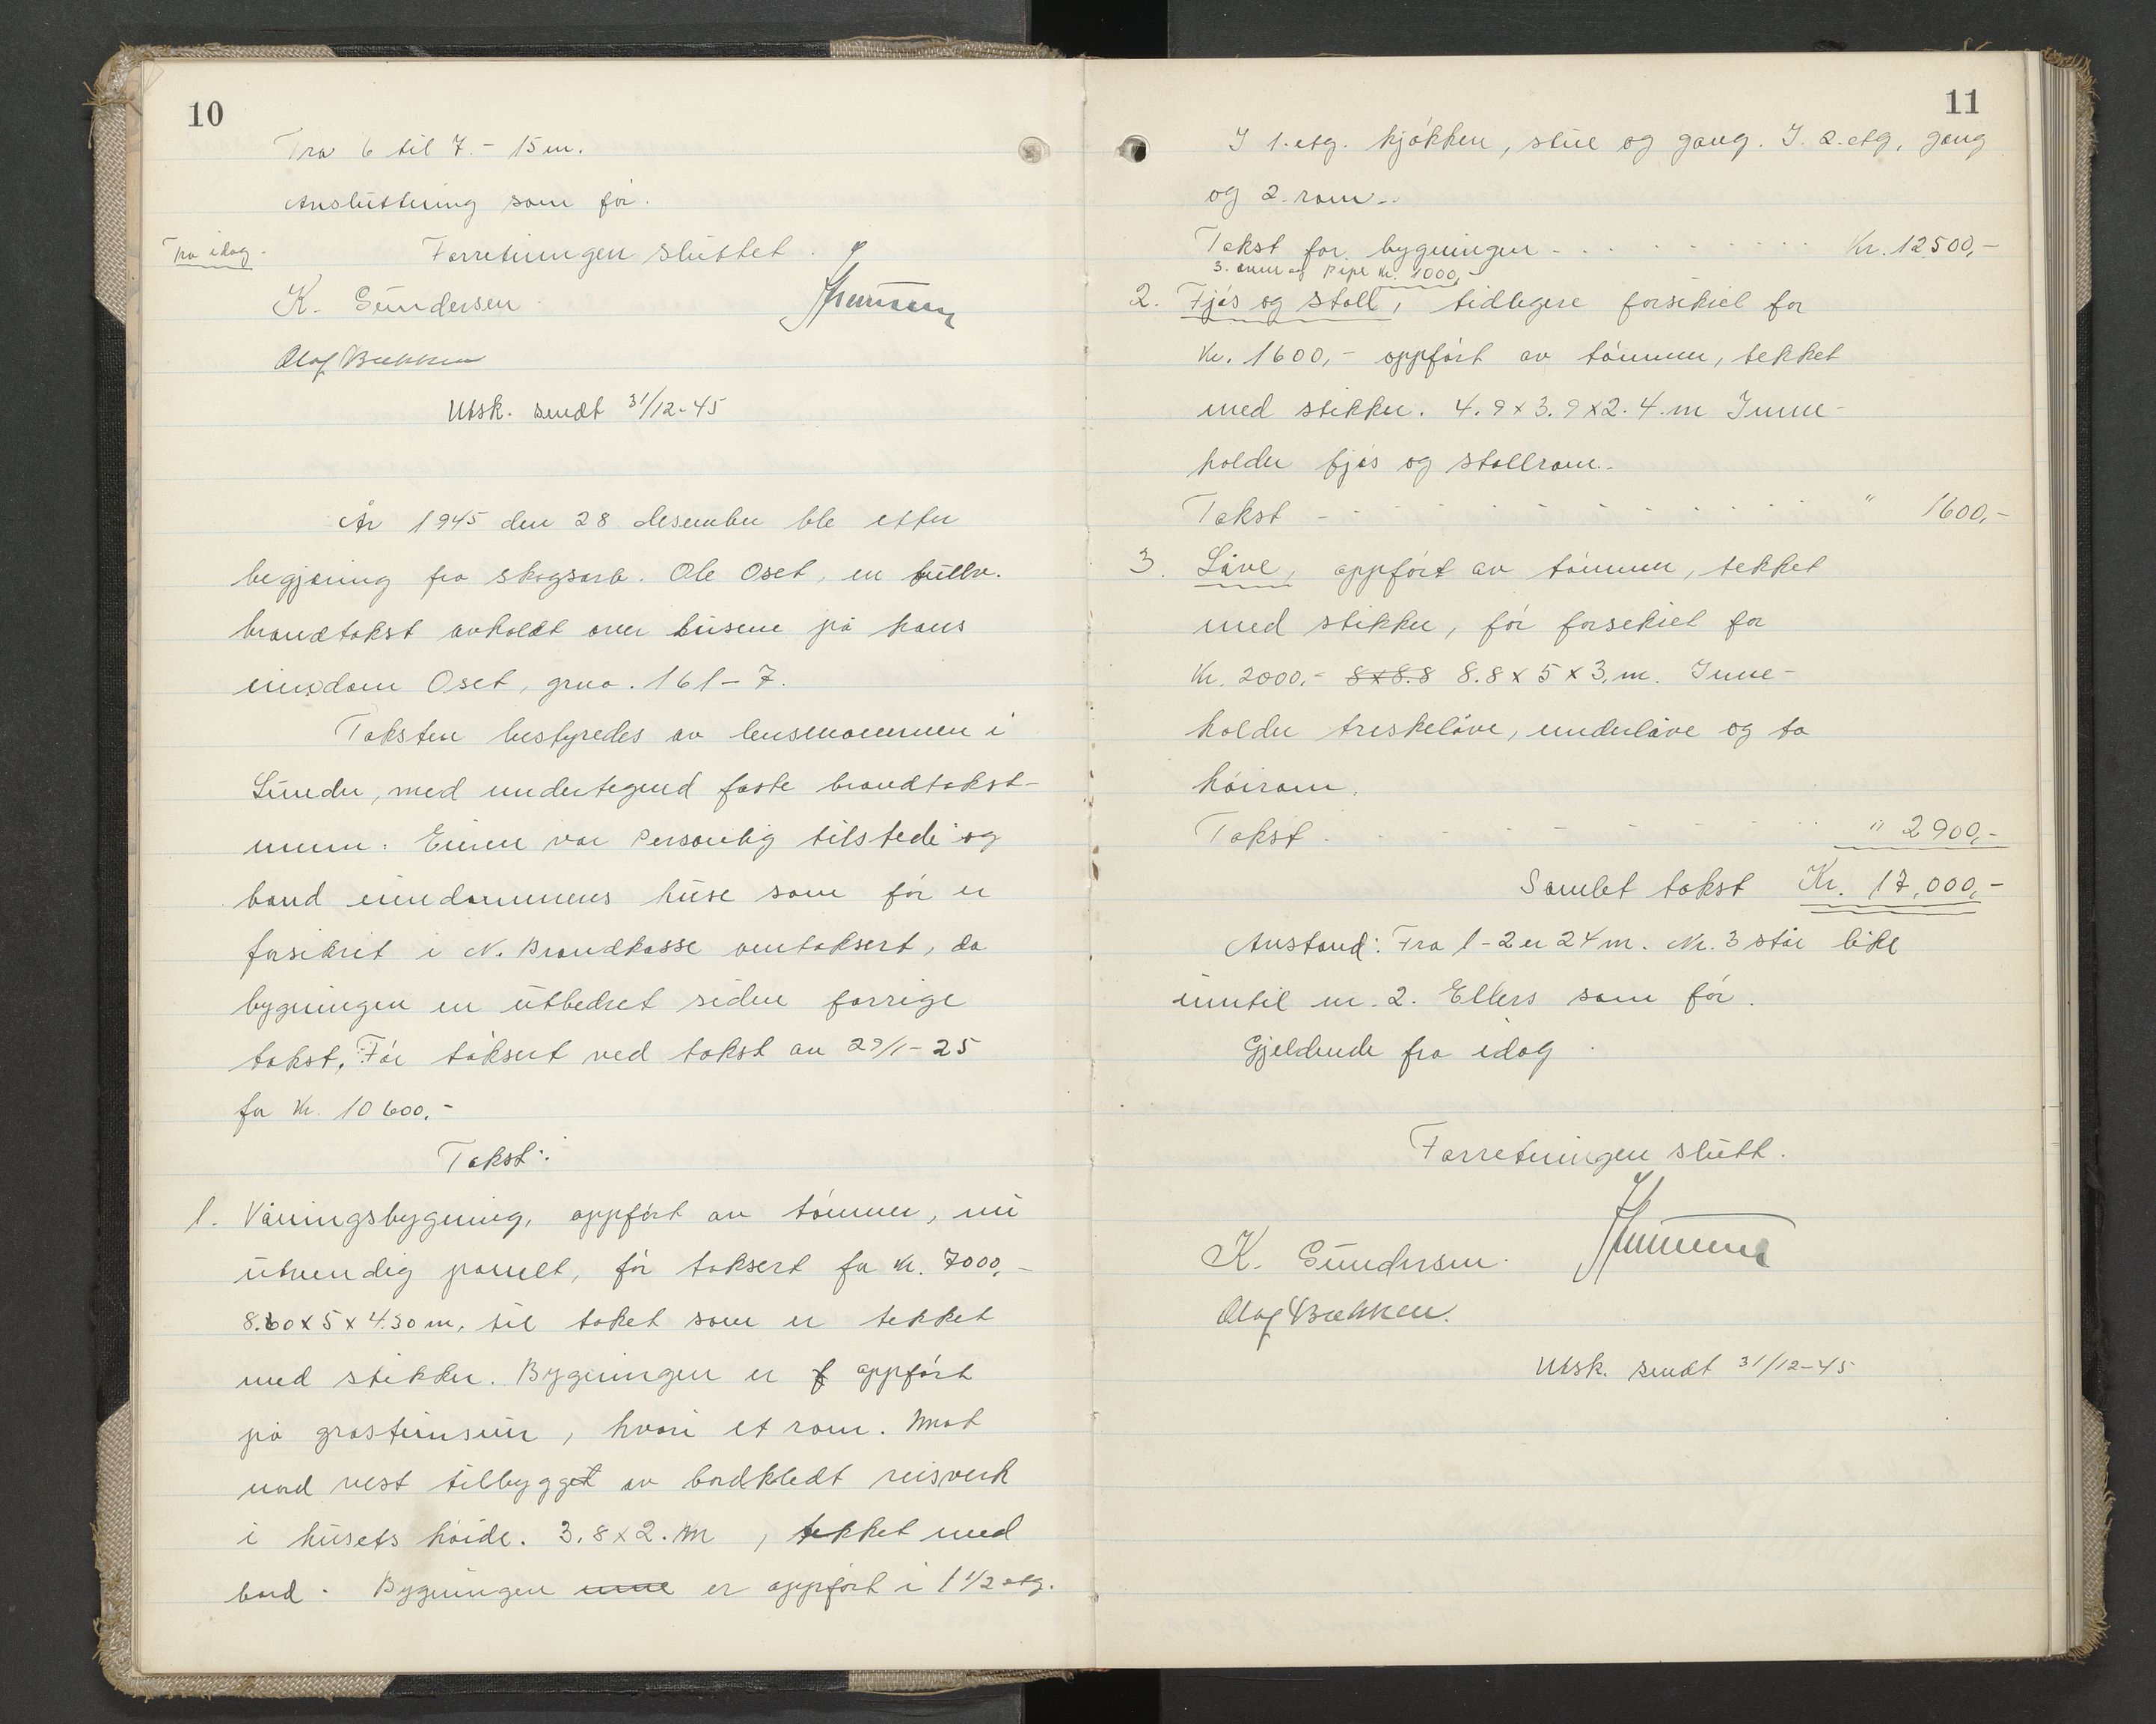 10
Fra 6 til 7. - 15 m.
Ansluttning som før.
Fra idag.
Forretningen sluttet.
K. Gundersen
Olaf Brekken
Utsk. sendt 31/12-45
År 1945 den 28 desember ble efter
begjæring fra skogsarb. Ole Oset, en
brandtakst avholdt over husene på hans
eiendom Oset, grno. 161-7.
Taksten bestyredes av lensmannen i
Lunder, med undertegned faste brandtakst-
menn. Eieren var personlig tilstede og
band eiendommens huse som før er
forsikret i N. Brandkasse omtaksert, da
bygningen en utbedret siden forrige
takst. Før taksert ved takst av 29/1-25
for Kr. 10600,-
Takst:
1. Våningsbygning, oppført av tømmer, nu
utvendig panelt, før taksert for kr. 7000,-
8.60 x 5 x 4.30 m, til taket som er tekket
med stikker. Bygningen er oppført
på gråsteinsmur, hvori et rom. Mot
nord vest tilbygget av bordkledt reisverk
i husets høide. 3.8 x 2. m, tekket med
bord. Bygningen inne er oppført i 1 1/2 etg.
11
I 1. etg. kjøkken, stue og gang. I. 2. etg, gang
og 2. rom..
Takst for bygningen - . . . . . . . . Kr. 12500,-
3. ovner og Pipe kr. 1000,-
2. Fjøs og stall, tidligere forsikret for
Kr. 1600,- oppført av tømmer, tekket
med stikker. 4.9 x 3.9 x 2.4. m Inne-
holder fjøs og stallrom.
Takst - . . . . . . . . . . " 1600,-
3. Låve, oppført av tømmer, tekket
med stikker, før forsikret for
Kr. 2000,- 8x8.8 8.8 x 5 x 3. m. Inne-
holder treskelåve, underlåve og to
høirom.
Takst . . . . . . . . . . " 2900,-
Samlet takst Kr. 17,000,-
Avstand: Fra 1-2 er 24 m. Nr. 3 står like
inntil nr. 2. Ellers som før.
Gjeldende fra idag.
Forretningen slutt.
K. Gundersen.
Olaf Brekken.
Utsk. sendt 31/12-45